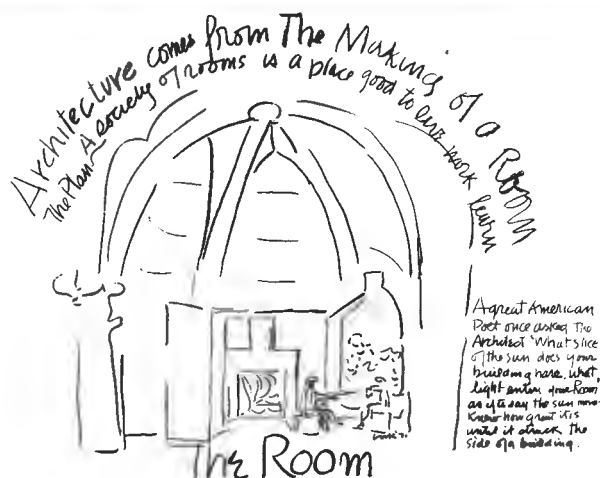 Architecture comes from The Making of a Room
The Plan A society of rooms is a place good to live work learn
A great American
Poet once asked The
Architect 'What slice
of the sun does your
building have, what
light enters your Room'
as if to say the sun never
Knew how great it is
until it struck the
side of a building.
The Room